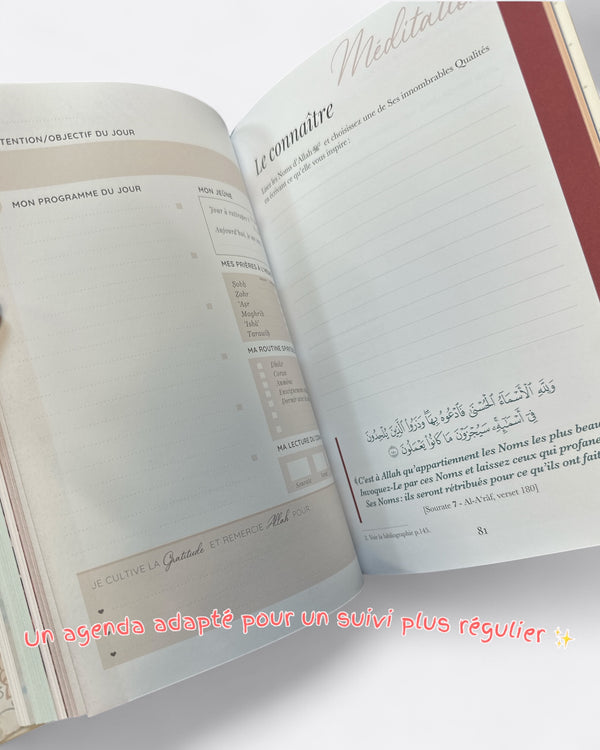 TENTION/OBJECTIF DU JOUR
MON PROGRAMME DU JOUR
MON JEÛNE
Jour à rattraper
Aujourd'hui, je
MES PRIÈRES À L'
Sobh
Zohr
'Asr
Maghrib
'Ishâ'
Tarawih
MA ROUTINE
Dhikr
Coran
Aumône
Dormir
MA LECTURE DU
Sourate
JE CULTIVE LA Gratitude ET REMERCIE Allah POUR
Méditation
Le connaître
Lisez les Noms d'Allah ﷻ et choisissez une de Ses innombrables Qualités
en écrivant ce qu'elle vous inspire :
وَلِلَّهِ الْأَسْمَاءُ الْحُسْنَىٰ فَادْعُوهُ بِهَا وَذَرُوا الَّذِينَ يُلْحِدُونَ
فِي أَسْمَائِهِ سَيُجْزَوْنَ مَا كَانُوا يَعْمَلُونَ
C'est à Allah qu'appartiennent les Noms les plus beau
Invoquez-Le par ces Noms et laissez ceux qui profane
Ses Noms : ils seront rétribués pour ce qu'ils ont fait
[Sourate 7 - Al-A'râf, verset 180]
Voir la bibliographie p.145.
81
Un agenda adapté pour un suivi plus régulier ✨